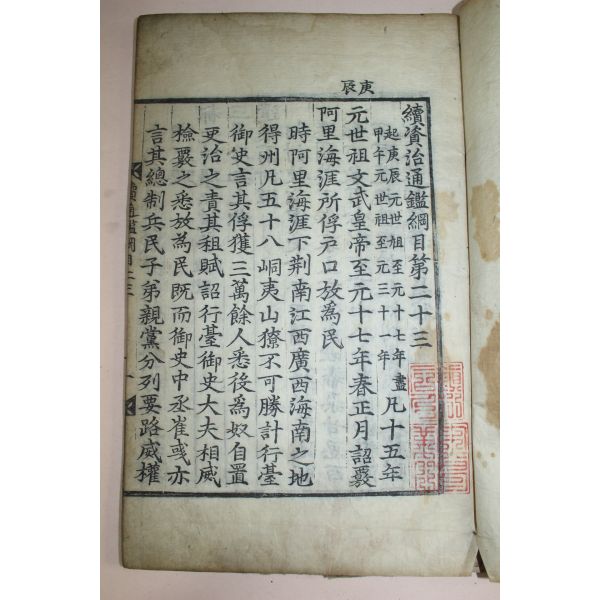 庚辰
續資治通鑑綱目第二十三
起庚辰元世祖至元十七年盡
甲午元世祖至元三十一年
凡十五年
元世祖文武皇帝至元十七年春正月詔覈
阿里海涯所俘戶口放為民
時阿里海涯下荆南江西廣西海南之地
得州凡五十八峒夷山獠不可勝計行臺
御史言其俘獲三萬餘人悉後為奴自置
吏治之責其租賦詔行臺御史大夫相威
檢覈之悉放為民既而御史中丞崔彧亦
言其總制兵民子弟親黨分列要路威權
續通鑑綱目二三